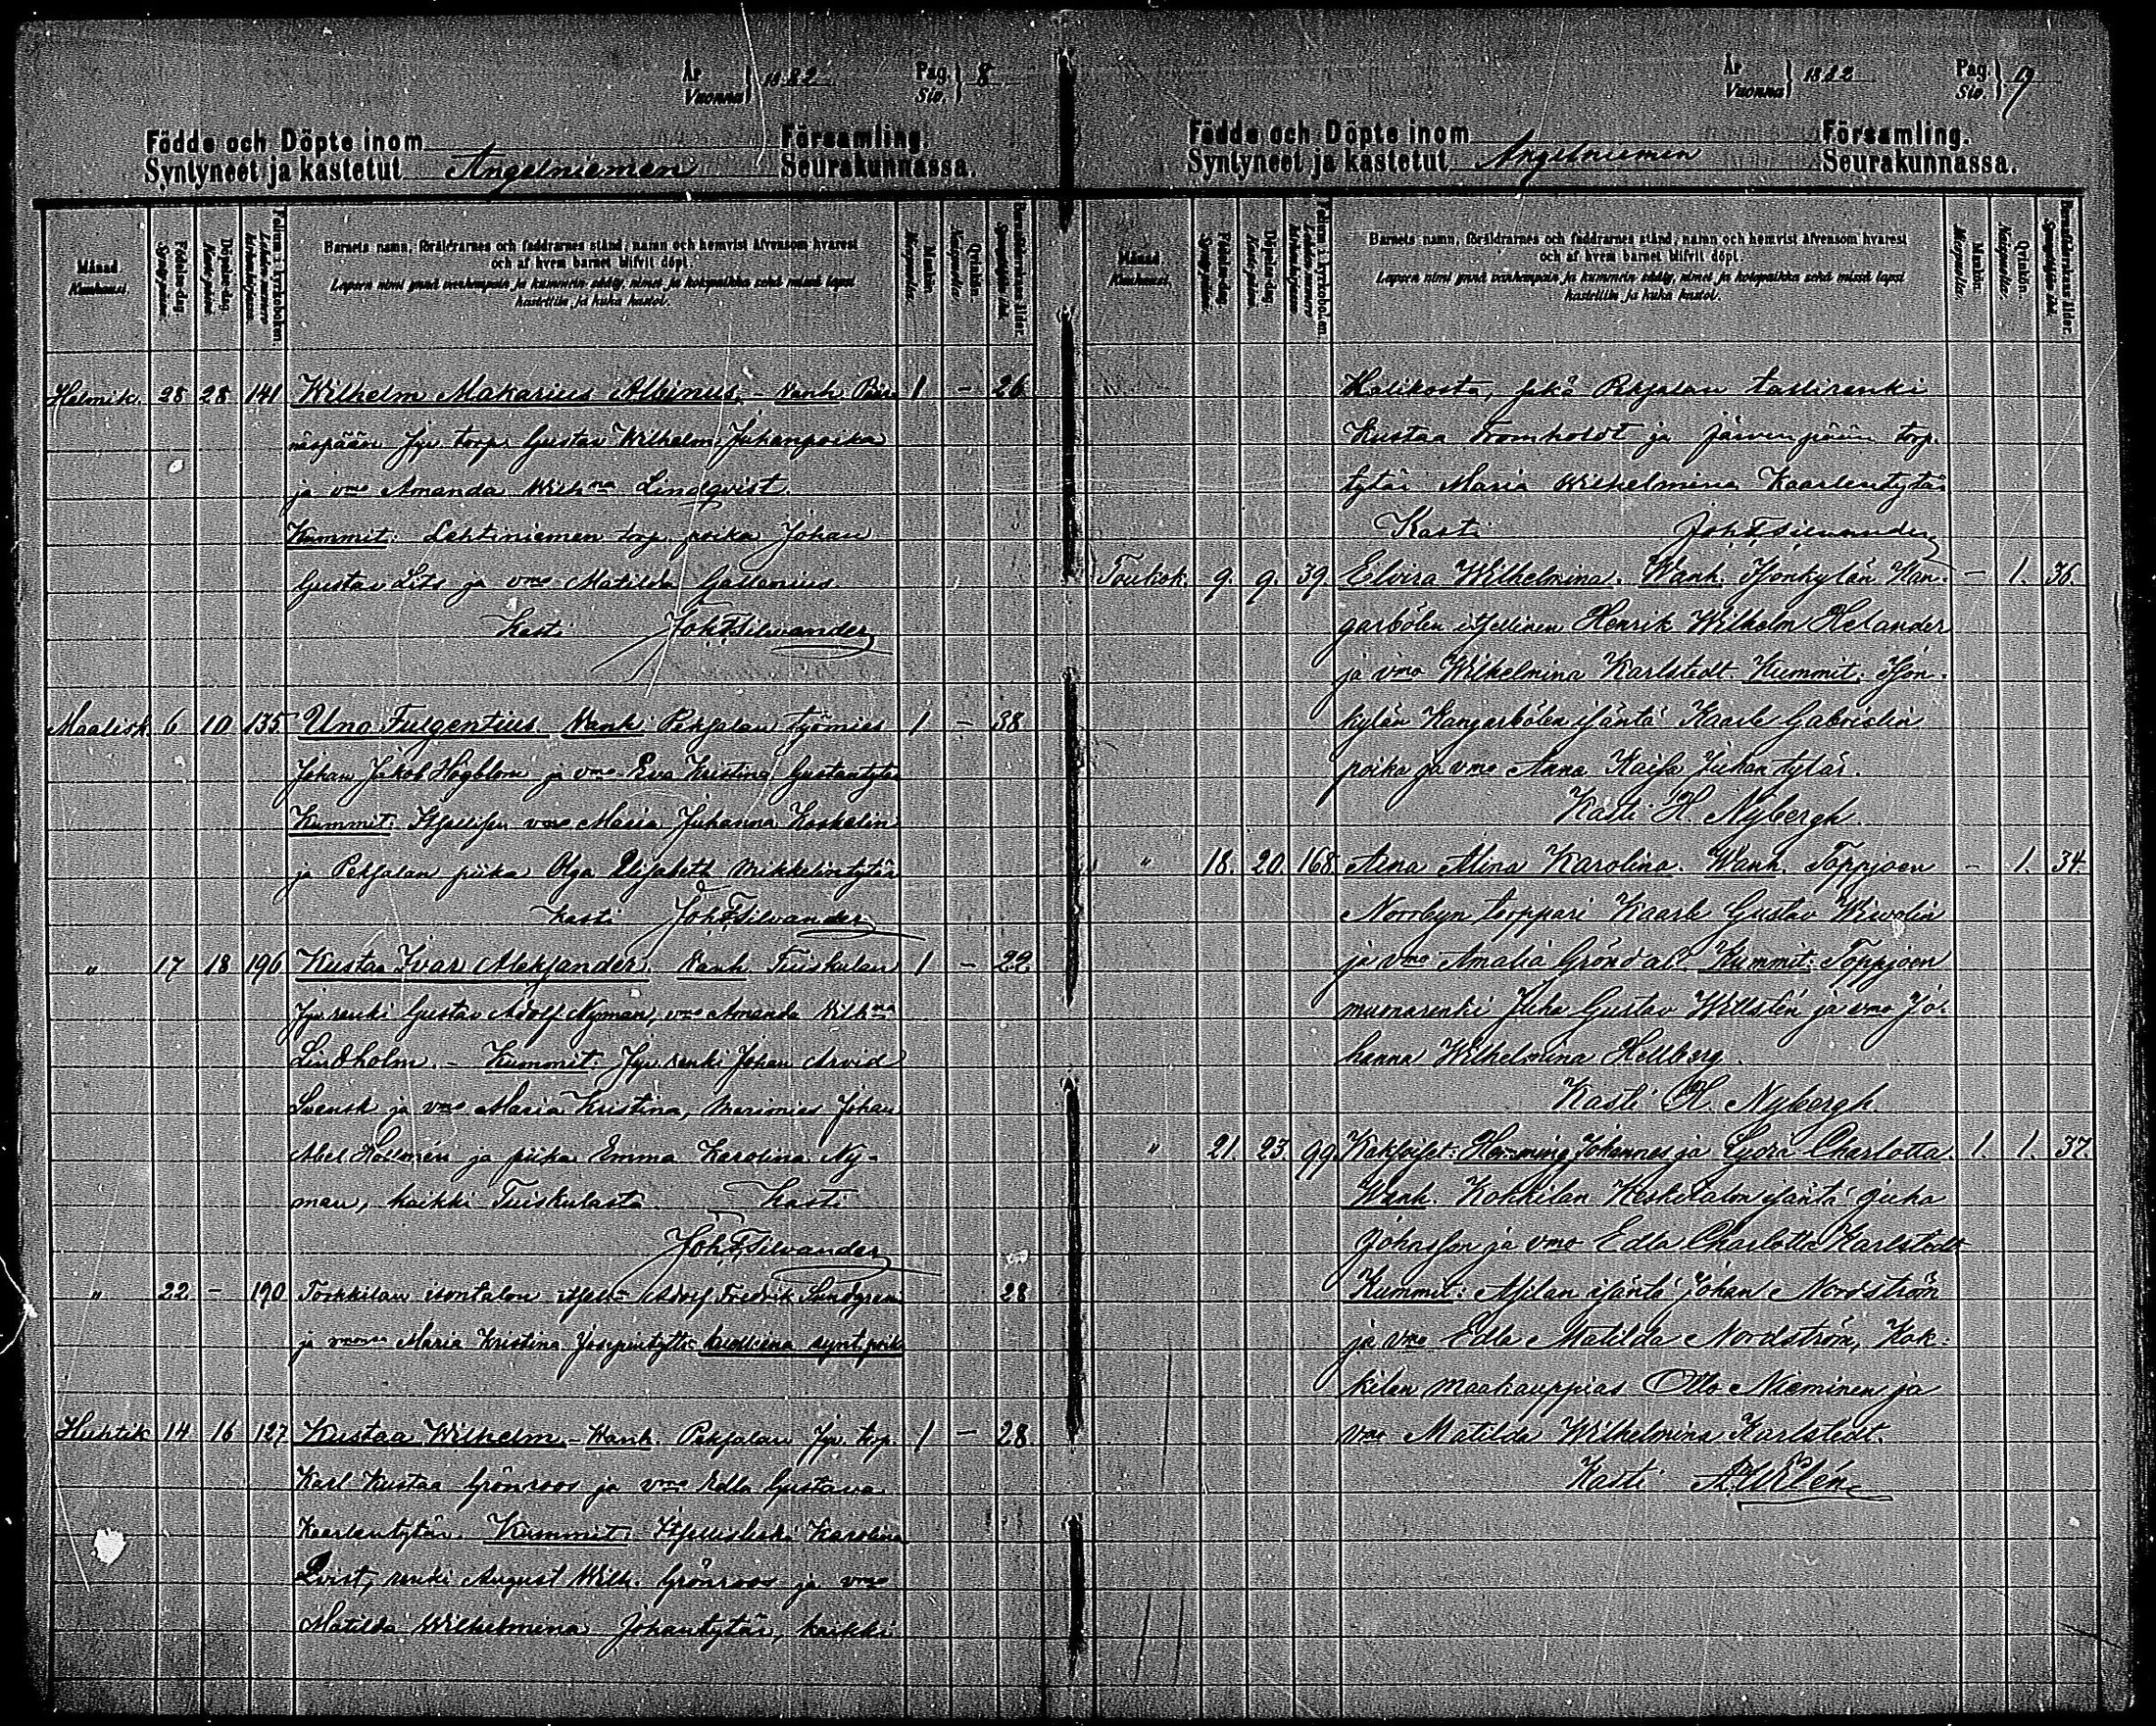 År
Vuonna } 1882
Pag.
Siv. } 8
Födde och Döpte inom Församling.
Syntyneet ja kastetut Angelniemen Seurakunnassa.
Månad
Kuukausi.
Födelse-dag.
Döpelse-dag.
Barnets namn, föräldrarnes och faddrarnes stånd, namn och hemvist äfvensom hvarest
och af hvem barnet blifvit döpt.
Lapsen nimi ynnä vanhempain ja kummein sääty, nimet ja kotopaikka sekä missä lapsi
kastettiin ja kuka kastoi.
Mankön.
Miespuolia.
Qvinkön.
Naispuolia.
Helmik. 28 28 141 Wilhelm Makarius Albinus. - Wanh. 1 - 26
näspään Jyv. torp. Gustav Wilhelm Juhanpoika
ja vmo Amanda Wilhna Lindqvist.
Kummit: Lehtiniemen torp. poika Johan
Gustav Lits ja vmo Matilda Gallenius
Kasti Joh. F. Silvander
Maalisk. 6 10 135 Uno Fulgentius. Wanh. Peksalan työmies 1 - 38
Johan Jakob Högblom ja vmo Eva Kristina Gustantytär
Kummit: Itsellisen vmo Maria Juhanna Koskelin
ja Peksalan piika Olga Elisabeth Mikkelintytär
Kasti Joh. F. Silvander
" 17 18 196 Kustaa Ivar Aleksander. Wanh. Tuiskulan 1 - 22
Jyv renki Gustav Adolf Nyman, vmo Amanda Wilhna
Lindholm. - Kummit: Jyv. renki Johan Arvid
Svensk ja vmo Maria Kristina, Merimies Johan
Abel Hollmén ja piika Emma Karolina Ny-
man, kaikki Tuiskulasta. Kasti
Joh. F. Silvander
" 22 - 190 Torkkilan isontalon itsell. Adolf Fredrik Sundgren 28
ja vmonsa Maria Kristina Josepintytär kuolleena synt. poika
Huhtik 14 16 127 Kustaa Wilhelm - Wanh. Peksalan Jyv. torp. 1 - 28
Karl Kustaa Grönroos ja vmo Edla Gustava
Kaarlentytär. Kummit: Itsellisleski Karolina
Qvist, renki August Wilh. Grönroos ja vmo
Matilda Wilhelmina Johantytär, kaikki
År
Vuonna } 1882
Pag.
Siv. } 9
Födde och Döpte inom Församling.
Syntyneet ja kastetut Angelniemen Seurakunnassa.
Månad
Kuukausi.
Födelse-dag.
Döpelse-dag.
Barnets namn, föräldrarnes och faddrarnes stånd, namn och hemvist äfvensom hvarest
och af hvem barnet blifvit döpt.
Lapsen nimi ynnä vanhempain ja kummein sääty, nimet ja kotopaikka sekä missä lapsi
kastettiin ja kuka kastoi.
Mankön.
Miespuolia.
Qvinkön.
Naispuolia.
Halikosta, sekä Peksalan tallirenki
Kustaa Tromholdt ja Järvenpään torp.
tytär Maria Wilhelmina Kaarlentytär
Kasti Joh. F. Silvander
Toukok. 9. 9. 39. Elvira Wilhelmina. Wanh. Isonkylän Kan- - 1. 36.
garbölen itsellinen Henrik Wilhelm Helander
ja vmo Wilhelmina Karlstedt. Kummit: Ison-
kylän Kangarbölen isäntä Kaarle Gabrielin
poika ja vmo Anna Kaisa Juhantytär.
Kasti H. Nybergh.
" 18. 20. 168. Aina Alina Karolina. Wanh. Toppjoen - 1. 34.
Norrbyn torppari Kaarle Gustav Wiwolin
ja vmo Amalia Gröndal. Kummit: Toppjoen
muonarenki Juha Gustav Willstén ja vmo Jo-
hanna Wilhelmina Hellberg.
Kasti H. Nybergh
" 21. 23. 99. Kaksoiset: Hemming Johannes ja Lydia Charlotta. 1. 1. 37.
Wanh. Kokkilan Keskitalon isäntä Juha
Johansson ja vmo Edla Charlotta Karlstedt
Kummit: Asilan isäntä Johan Nordström
ja vmo Edla Matilda Nordström, Kok-
kilan maakauppias Otto Nieminen ja
vmo Matilda Wilhelmina Karlstedt.
Kasti